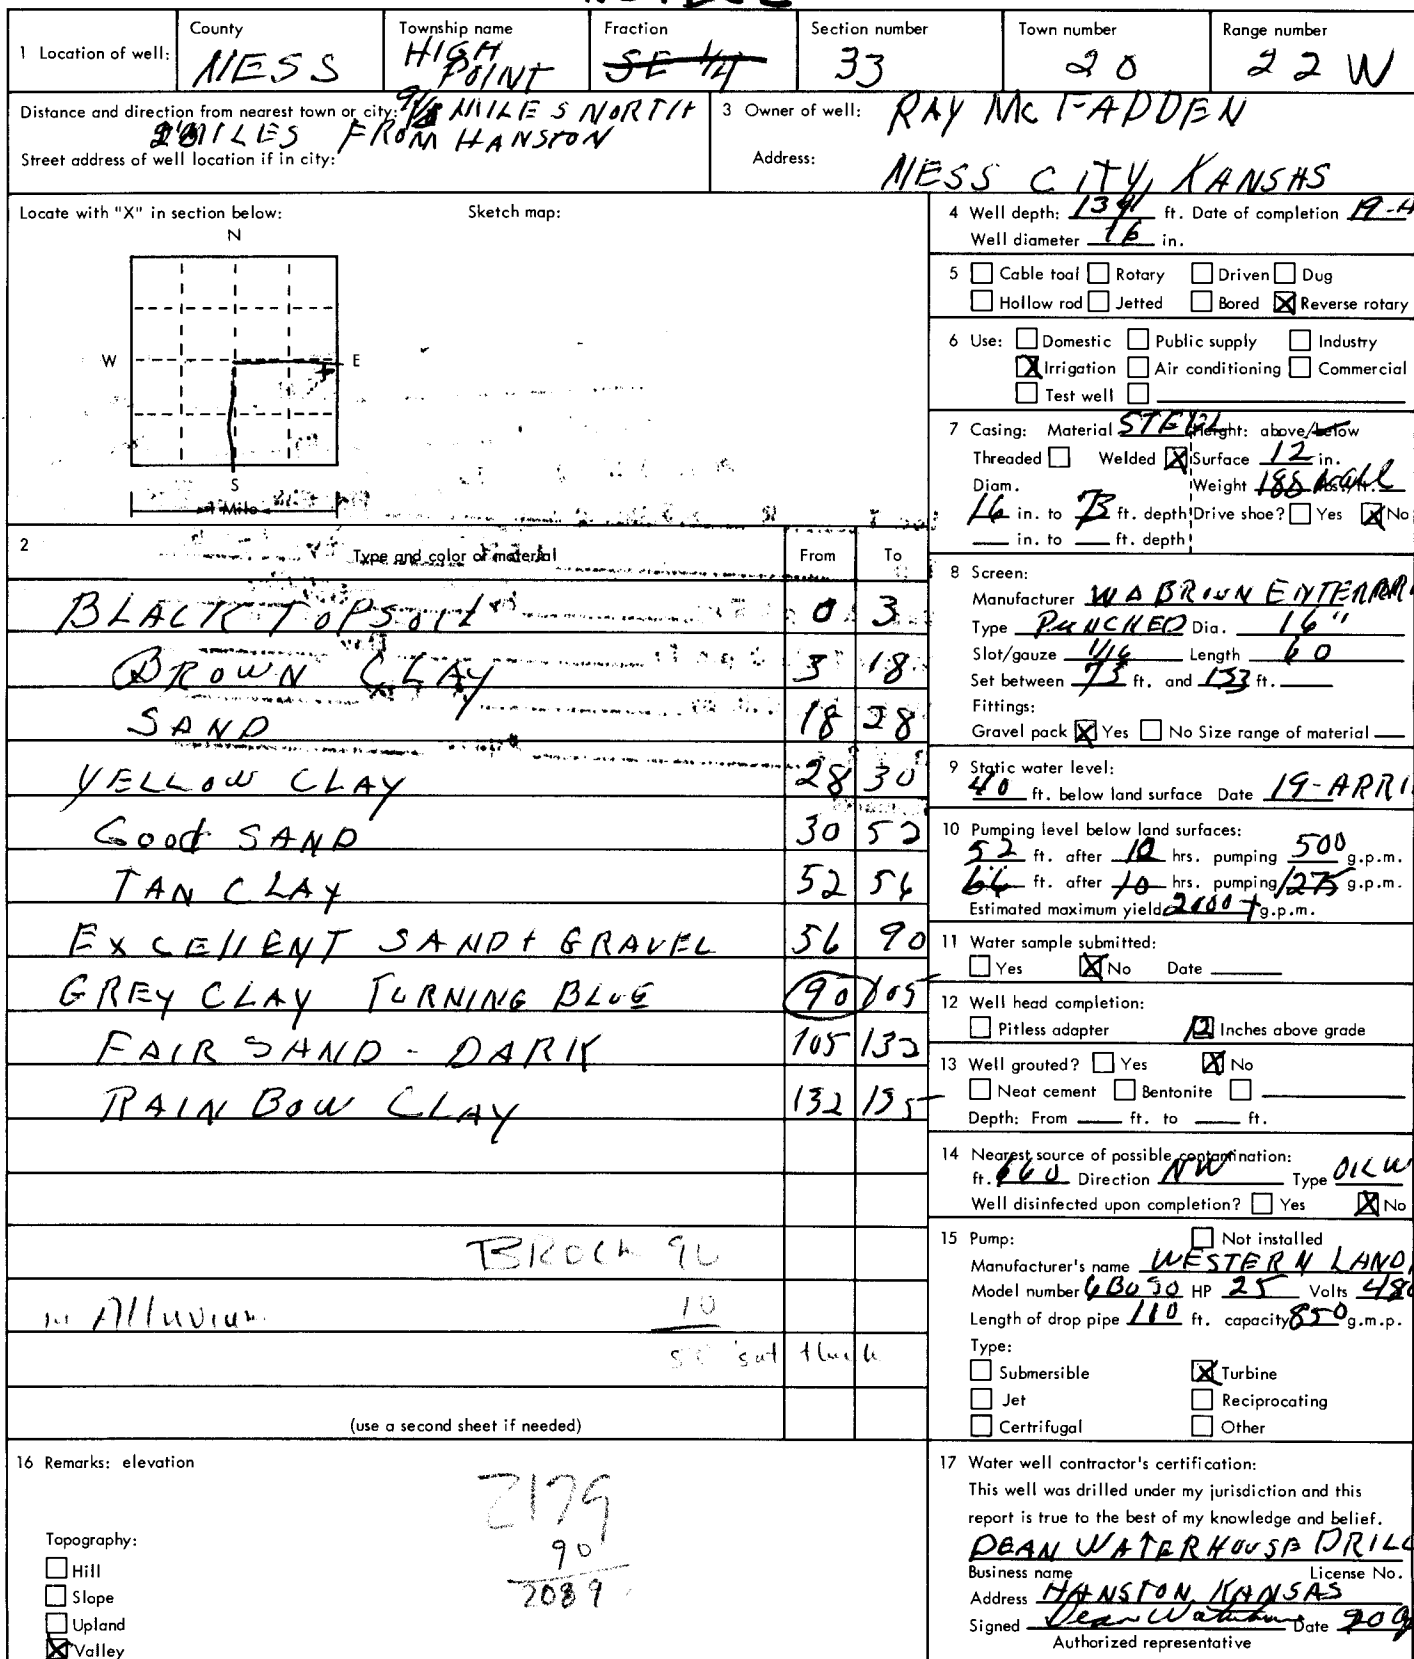 County Township name Fraction Section number Town number Range number
1 Location of well: NESS HIGH POINT SE 1/4 33 20 22 W
Distance and direction from nearest town or city: 9 1/2 MILES NORTH
MILES FROM HANSTON
Street address of well location if in city:
3 Owner of well: RAY McFADDEN
Address: NESS CITY, KANSAS
Locate with "X" in section below: Sketch map:
N
W E
S
1 Mile
2 Type and color of material From To
BLACK TOPSOIL 0 3
BROWN CLAY 3 18
SAND 18 28
YELLOW CLAY 28 30
Good SAND 30 52
TAN CLAY 52 56
EXCEllENT SAND + GRAVEL 56 90
GREY CLAY TURNING BLUE 90 105
FAIR SAND - DARK 105 132
RAIN BOW CLAY 132 135
BROCK 90
in Alluvium 10
sat thick
(use a second sheet if needed)
4 Well depth: 134 ft. Date of completion 19-A
Well diameter 16 in.
5 Cable tool Rotary Driven Dug
Hollow rod Jetted Bored X Reverse rotary
6 Use: Domestic Public supply Industry
X Irrigation Air conditioning Commercial
Test well
7 Casing: Material STEEL Height: above/below
Threaded Welded X Surface 12 in.
Diam. Weight 188 lbs./ft.
16 in. to 73 ft. depth Drive shoe? Yes X No
in. to ft. depth
8 Screen:
Manufacturer W A BROWN ENTERPRI
Type PUNCHED Dia. 16"
Slot/gauze 1/16 Length 60
Set between 73 ft. and 133 ft.
Fittings:
Gravel pack X Yes No Size range of material
9 Static water level:
40 ft. below land surface Date 19-APRI
10 Pumping level below land surfaces:
52 ft. after 10 hrs. pumping 500 g.p.m.
66 ft. after 10 hrs. pumping 1275 g.p.m.
Estimated maximum yield 2000+ g.p.m.
11 Water sample submitted:
Yes X No Date
12 Well head completion:
Pitless adapter 12 Inches above grade
13 Well grouted? Yes X No
Neat cement Bentonite
Depth: From ft. to ft.
14 Nearest source of possible contamination:
ft. 660 Direction NW Type OIL W
Well disinfected upon completion? Yes X No
15 Pump: Not installed
Manufacturer's name WESTERN LAND
Model number HP 25 Volts 480
Length of drop pipe 110 ft. capacity 850 g.m.p.
Type:
Submersible X Turbine
Jet Reciprocating
Certrifugal Other
16 Remarks: elevation
2179
90
2089
Topography:
Hill
Slope
Upland
X Valley
17 Water well contractor's certification:
This well was drilled under my jurisdiction and this
report is true to the best of my knowledge and belief.
DEAN WATERHOUSE DRILL
Business name License No.
Address HANSTON, KANSAS
Signed Dean Waterhouse Date
Authorized representative